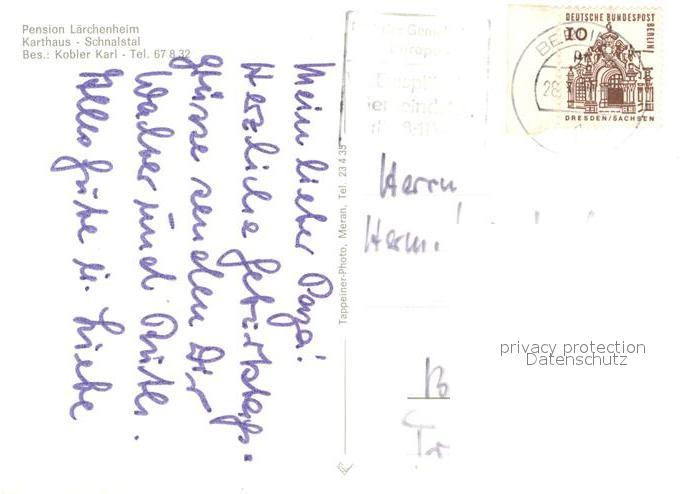 Pension Lärchenheim
Karthaus - Schnalstal
Bes.: Kobler Karl - Tel. 67 8 32
Mein lieber Papa!
Herzliche Geburtstags-
grüsse senden Dir
und
Alles Gute u. Liebe
Tappeiner-Photo, Meran, Tel. 23 4 35
DEUTSCHE BUNDESPOST
BERLIN
10
DRESDEN/SACHSEN
BERLIN
28
Herrn
Herm.
privacy protection
Datenschutz